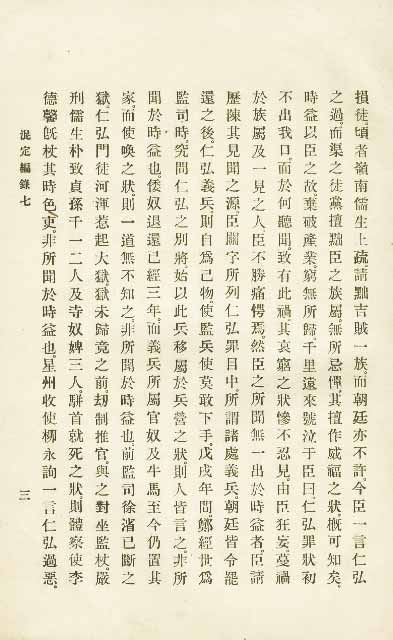 損徒頃者嶺南儒生上疏請黜吉賊一族而朝廷亦不許今臣一言仁弘
之過而渠之徒黨擅黜臣之族屬無所忌憚其擅作威福之狀槪可知矣
時益以臣之故棄破產業窮無所歸千里遠來號泣于臣曰仁弘罪狀初
不出我口而於何聽聞致有此禍其哀窮之狀慘不忍見由臣狂妄蔓禍
於族屬及一見之人臣不勝痛愕焉然臣之所聞無一出於時益者臣請
歷陳其見聞之源臣關字所列仁弘罪目中所謂諸處義兵朝廷皆令罷
還之後仁弘義兵則自爲己物使監兵使莫敢下手戊戌年間鄭經世爲
監司時究問仁弘之別將始以此兵移屬於兵營之狀則人皆言之非所
聞於時益也倭奴退還已經三年而義兵所屬官奴及牛馬至今仍置其
家而使喚之狀則一道無不知之非所聞於時益也前監司徐渻已斷之
獄仁弘門徒河渾惹起大獄獄未歸竟之前刧制推官與之對坐監杖嚴
刑儒生朴致貞孫千一二人及寺奴婢三人騈首就死之狀則體察使李
德馨旣杖其時色吏非所聞於時益也星州收使柳永詢一言仁弘過惡
混定編錄七
三